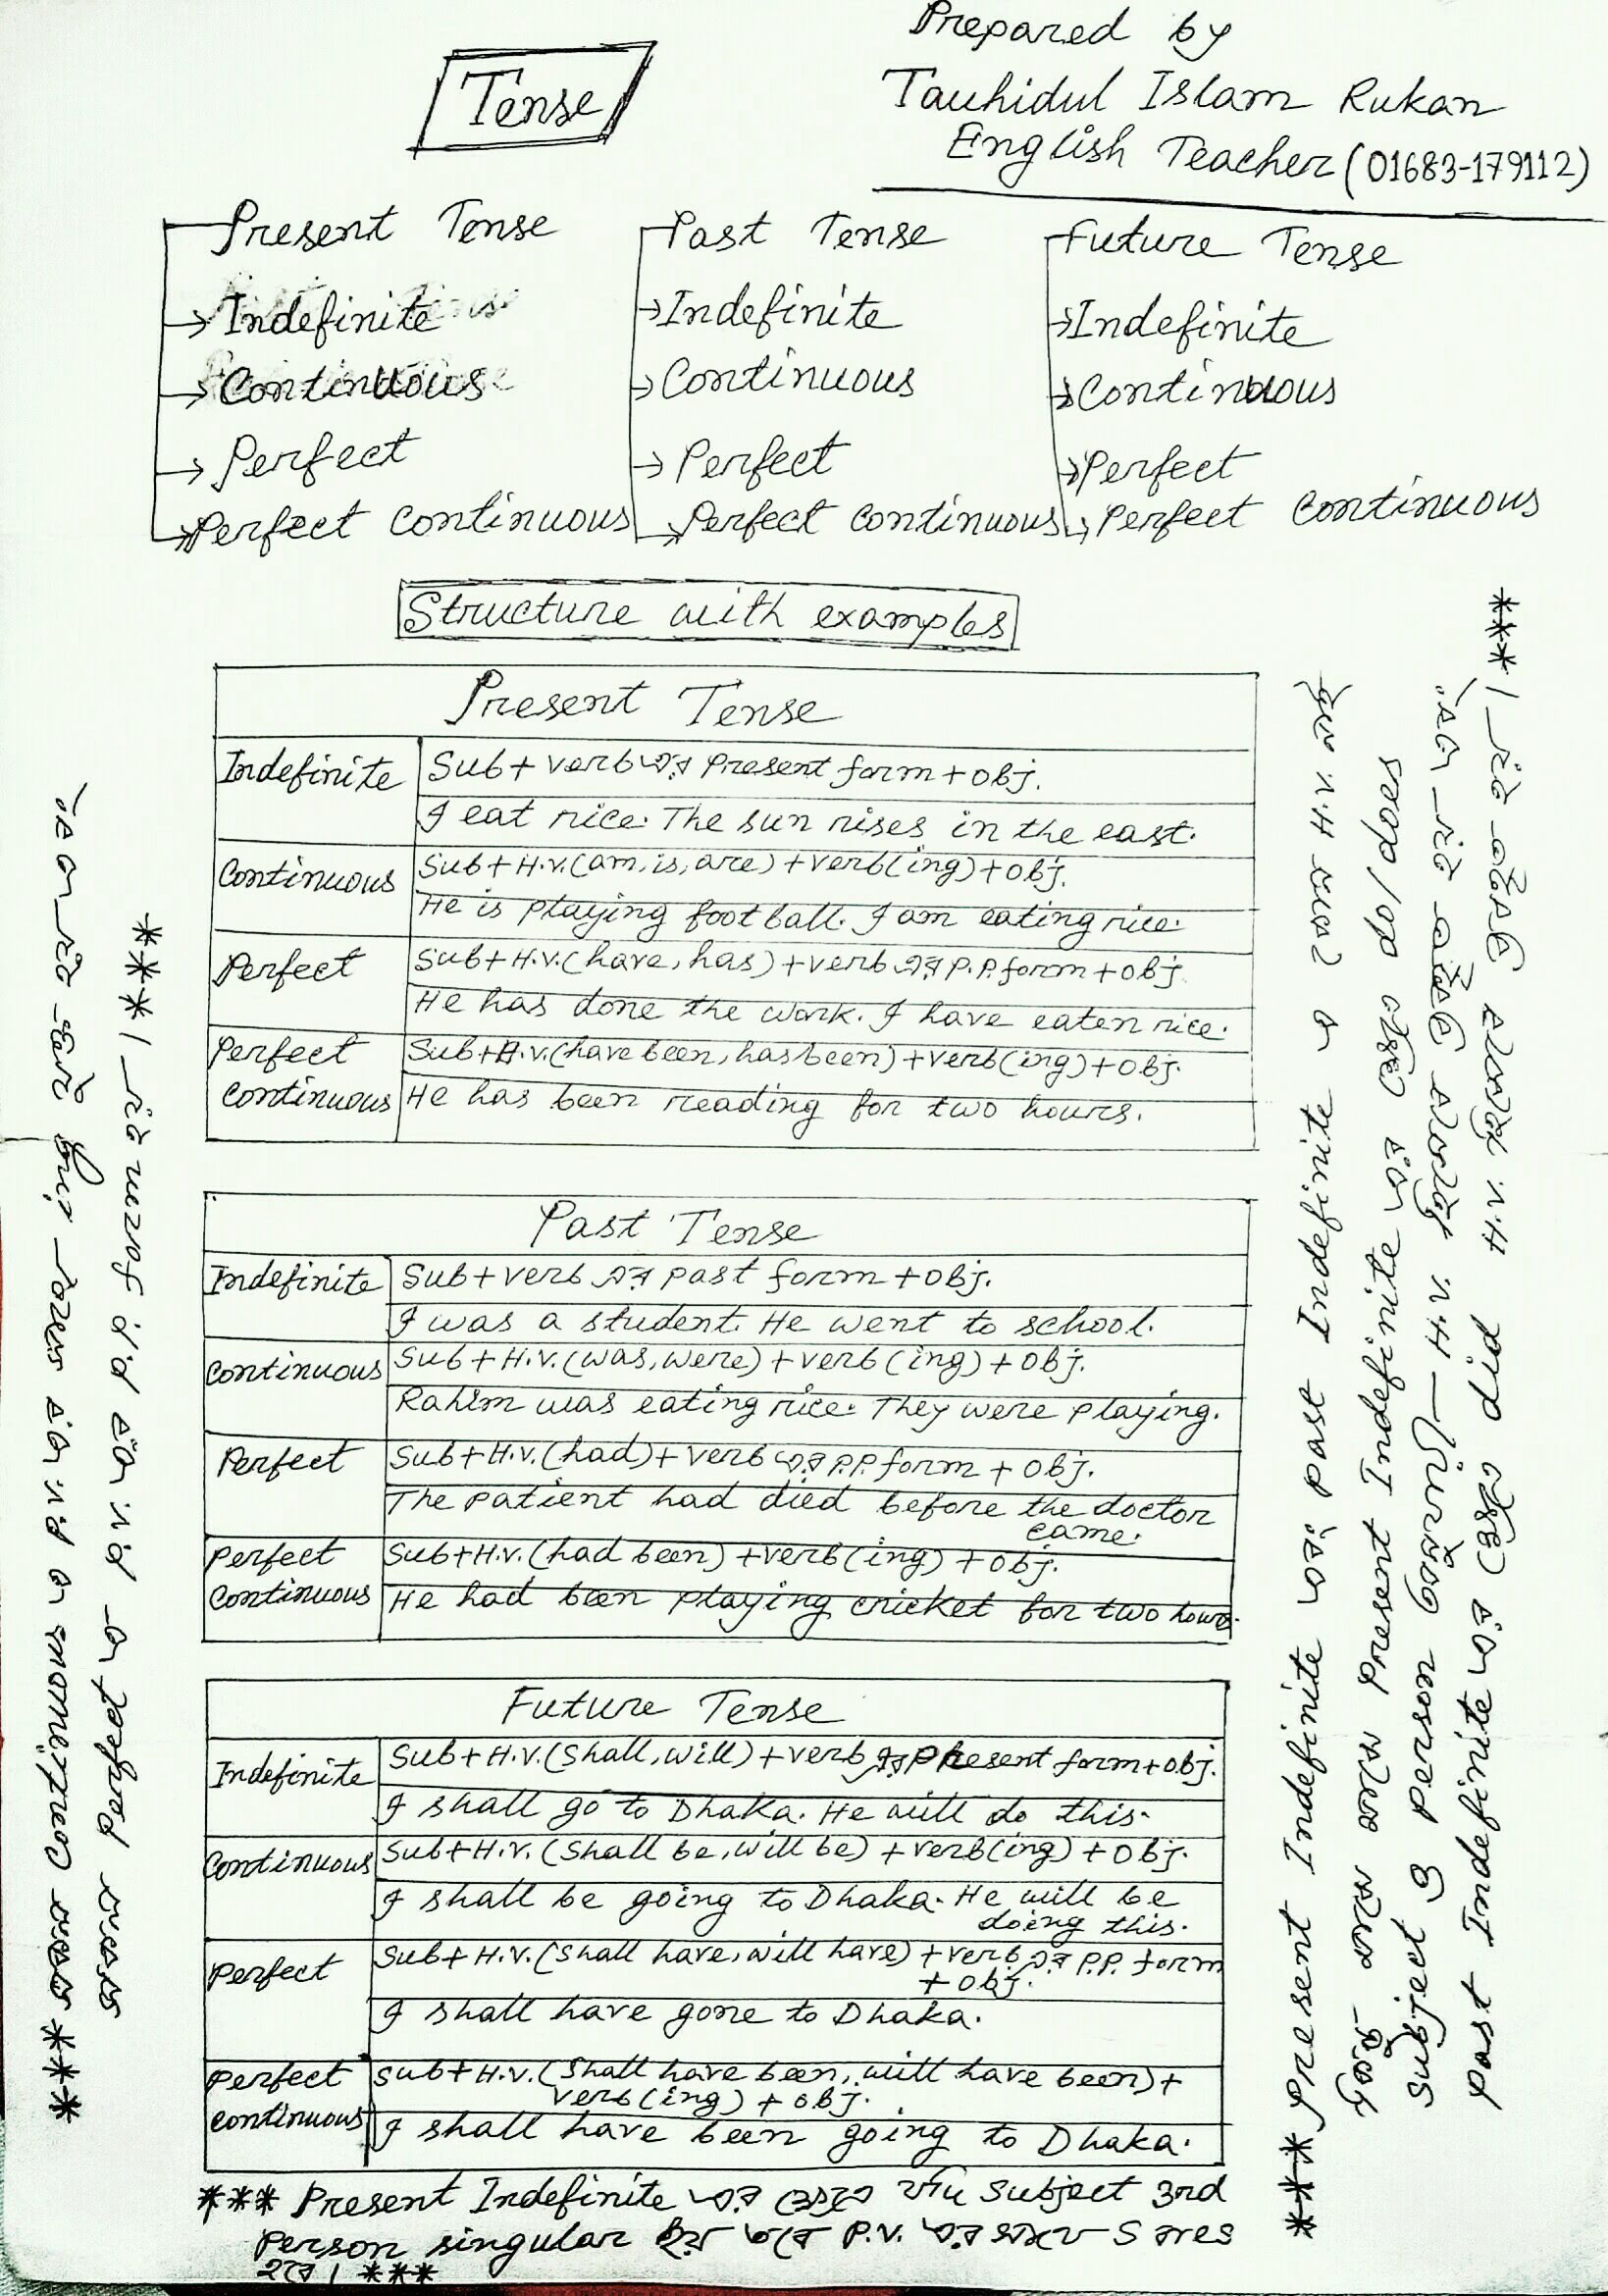 Prepared by
Tense
Tauhidul Islam Rukan
English Teacher (01683-179112)
Present Tense
Indefinite
Continuous
Perfect
Perfect continuous
Past Tense
Indefinite
Continuous
Perfect
Perfect continuous
Future Tense
Indefinite
Continuous
Perfect
Perfect continuous
Structure with examples
Present Tense
Indefinite
Sub + verb এর Present form + obj.
I eat rice. The sun rises in the east.
Continuous
Sub + H.v. (am, is, are) + verb (ing) + obj.
He is playing football. I am eating rice.
Perfect
Sub + H.v. (have, has) + verb এর P.P. form + obj.
He has done the work. I have eaten rice.
Perfect
continuous
Sub + H.v. (have been, has been) + verb (ing) + obj.
He has been reading for two hours.
Past Tense
Indefinite
Sub + verb এর past form + obj.
I was a student. He went to school.
Continuous
Sub + H.v. (was, were) + verb (ing) + obj.
Rahim was eating rice. They were playing.
Perfect
Sub + H.v. (had) + verb এর P.P. form + obj.
The patient had died before the doctor
came.
Perfect
Continuous
Sub + H.v. (had been) + verb (ing) + obj.
He had been playing cricket for two hours.
Future Tense
Indefinite
Sub + H.v. (Shall, will) + verb এর Present form + obj.
I shall go to Dhaka. He will do this.
Continuous
Sub + H.v. (Shall be, will be) + verb (ing) + obj.
I shall be going to Dhaka. He will be
doing this.
Perfect
Sub + H.v. (Shall have, will have) + verb এর P.P. form
+ obj.
I shall have gone to Dhaka.
Perfect
continuous
Sub + H.v. (Shall have been, will have been) +
verb (ing) + obj.
I shall have been going to Dhaka.
*** Present Indefinite এর ক্ষেত্রে যদি Subject 3rd
Person singular হয় তবে P.V. এর সাথে S বা es
হবে। ***
*** সকল Continuous এ P.V এর সাথে ing যোগ হয়
সকল perfect এ P.V এর P.P form হয়। ***
*** Present Indefinite এবং past Indefinite এ কোন H.V নেই
present Indefinite এর ক্ষেত্রে do/does
Subject ও person অনুযায়ী H.V
past Indefinite এর ক্ষেত্রে did H.V হিসাবে ***